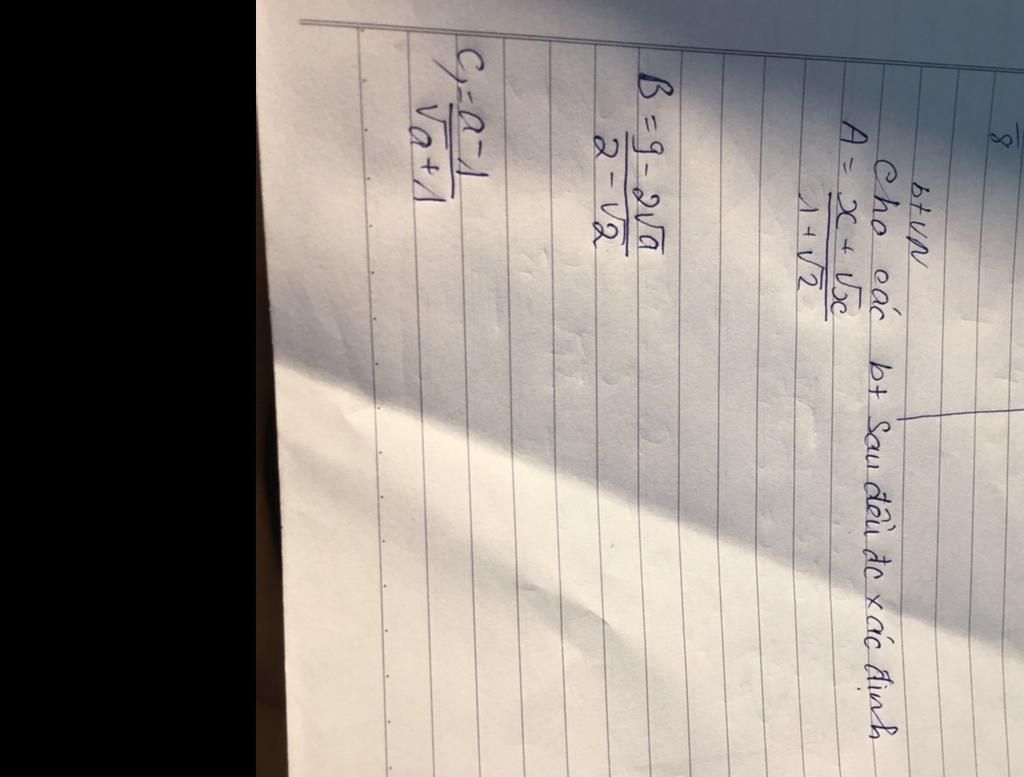 8
b+VN
Cho các bt sau đều đc xác định
A = x + √x
1 + √2
B = 9 - 2√a
2 - √2
C, = a - 1
√a + 1